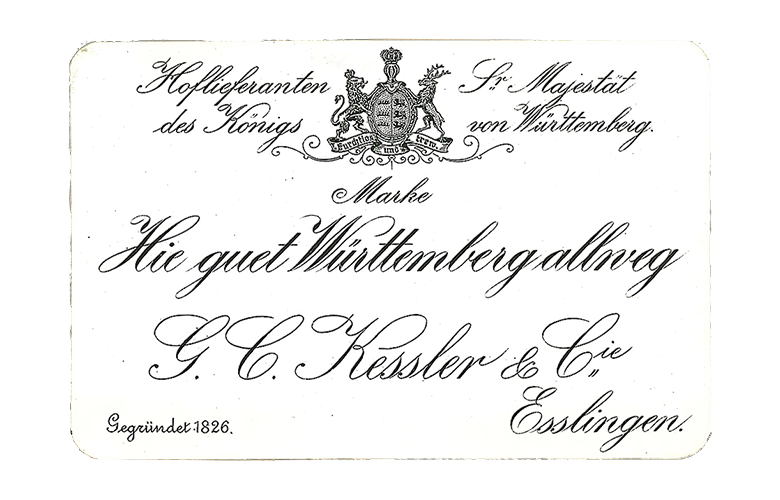 Hoflieferanten Sr. Majestät
des Königs von Württemberg.
Furchtlos und trew.
Marke
Hie guet Württemberg allweg
G. C. Kessler & Cie
Esslingen.
Gegründet 1826.